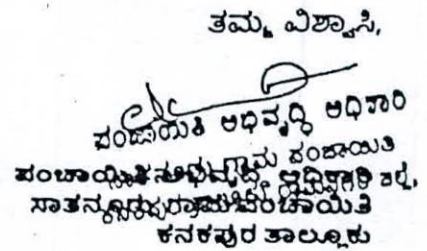 ತಮ್ಮ ವಿಶ್ವಾಸಿ,
ಪಂಚಾಯಿತಿ ಅಭಿವೃದ್ಧಿ ಅಧಿಕಾರಿ
ಗ್ರಾಮ ಪಂಚಾಯಿತಿ
ಪಂಚಾಯಿತಿ ಅಭಿವೃದ್ಧಿ ಅಧಿಕಾರಿ
ಸಾತನೂರು ಗ್ರಾಮ ಪಂಚಾಯಿತಿ
ಕನಕಪುರ ತಾಲ್ಲೂಕು